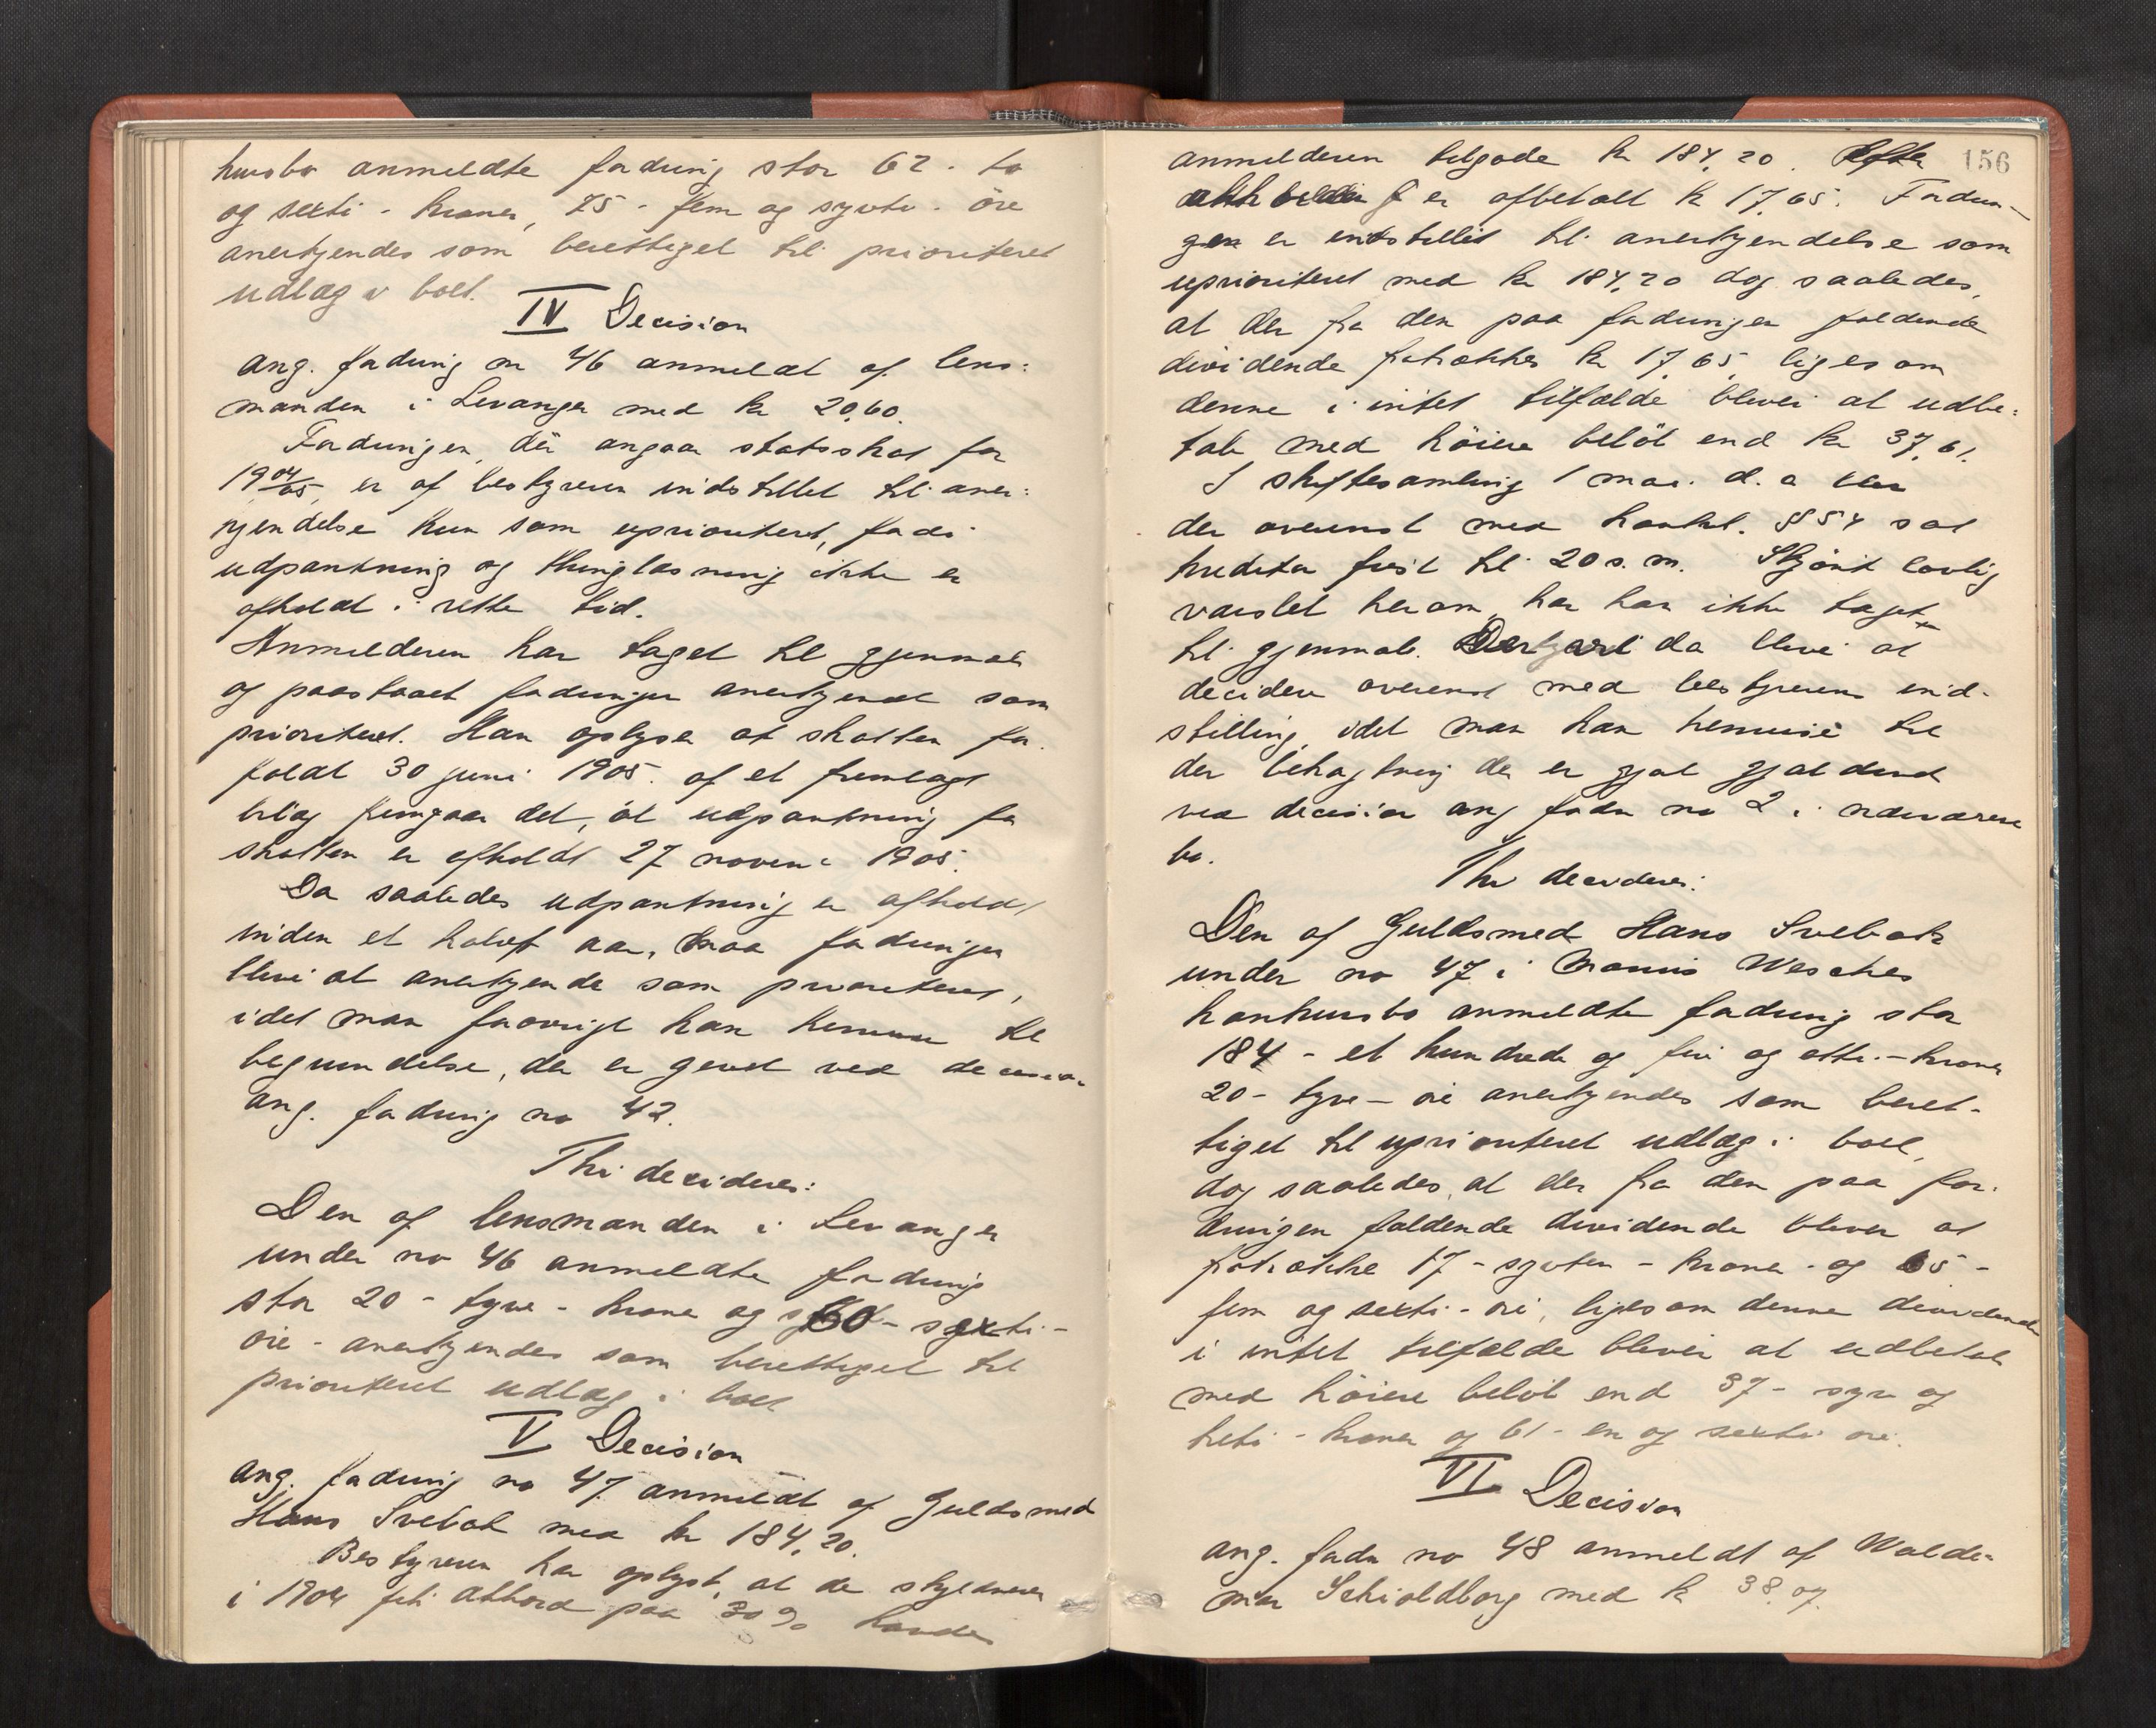 husbo anmeldte fordring stor 62 - to
og sexti - kroner, 75 - fem og sytti - øre
anerkjendes som berettiget til prioriteret
udlæg i boet.
IV Decision
ang. fordring no 46 anmeldt af lens:
manden i Levanger med kr 20,60.
Fordringen, der angaar statsskat for
1904/05, er af bestyreren indstillet til aner:
kjendelse kun som uprioritert, fordi
udpantning og thinglæsning ikke er
afholdt i rette tid.
Anmelderen har taget til gjenmæle
og paastaaet fordringen anerkjendt som
prioriteret. Han oplyser at skatten for:
faldt 30 juni 1905. Af et fremlagt
bilag fremgaar det, at udpantning for
skatten er afholdt 27 novem: 1905.
Da saaledes udpantning er afholdt
inden et halvt aar, maa fordringen
blive at anerkjende som prioriteret,
idet man forøvrigt kan henvise til
begrundelse, der er givet ved decision
ang. fordring no 42.
Thi decideres:
Den af lensmanden i Levanger
under no 46 anmeldte fordring
stor 20 - tyve - kroner og 60 - sexti -
øre - anerkjendes som berettiget til
prioriteret udlæg i boet
V Decision
ang. fordring no 47 anmeldt af Guldsmed
Hans Svebak med kr 184,20.
Bestyreren har oplyst, at da skyldneren
i 1904 fik akkord paa 30 % havde
156
anmelderen tilgode kr 184,20. Efter
akkorden er afbetalt kr 17,65. Fordrin-
gen er indstillet til anerkjendelse som
uprioriteret med kr 184,20 dog saaledes,
at der fra den paa fordringen faldende
dividende fratrækkes kr 17,65, ligesom
denne i intet tilfælde bliver at udbe:
tale med høiere beløb end kr 37,61.
I skiftesamling 1 mai d. a blev
der overenst med konkl. § 54 sat
kreditor frist til 20 s. m. Skjønt lovlig
varslet herom, har han ikke taget
til gjenmæle. da blive at
decidere overenst med bestyrerens ind-
stilling, idet man kan henvise til
den betragtning der er gjort gjældende
ved decision ang fordr no 2 i nærværende
bo.
Thi decideres:
Den af Guldsmed Hans Svebak
under no 47 i Wesches
konkursbo anmeldte fordring stor
184 - et hundrede og fire og otti - kroner
20 - tyve - øre anerkjendes som beret-
tiget til uprioriteret udlæg i boet,
dog saaledes, at der fra den paa for-
dringen faldende dividende bliver at
fratrække 17 - sytten - kroner - og 65 -
fem og sexti - øre, ligesom denne dividende
i intet tilfælde bliver at udbetale
med høiere beløb end 37 - syv og
treti - kroner og 61 - en og sexti øre.
VI Decision
ang. fordr no 48 anmeldt af Walde-
mar Schioldborg med kr 38,07.